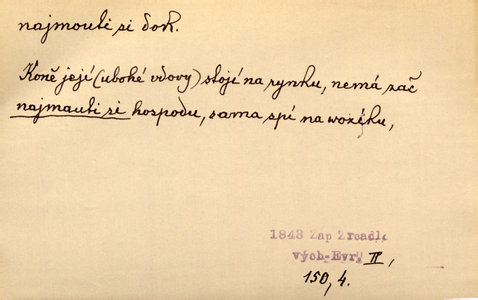 najmouti si dok.
Koně její (ubohé vdovy) stojí na rynku, nemá zač
najmauti si hospodu, sama spí na wozéku,
1843 Zap Zrcadl.
vých-Evr. II,
150, 4.